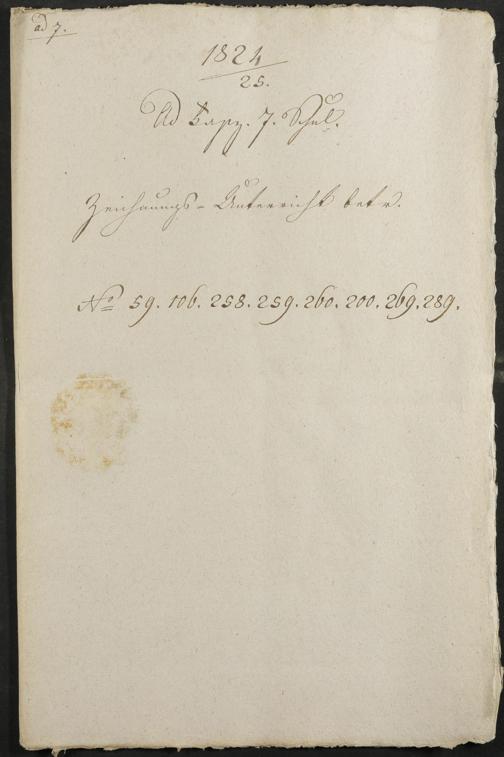 ad 7.
1824
25.
Ad Fasz. 7. Schul.
Zeichnungs-Unterricht betr.
No 59. 106. 258. 259. 260. 200. 269. 289.